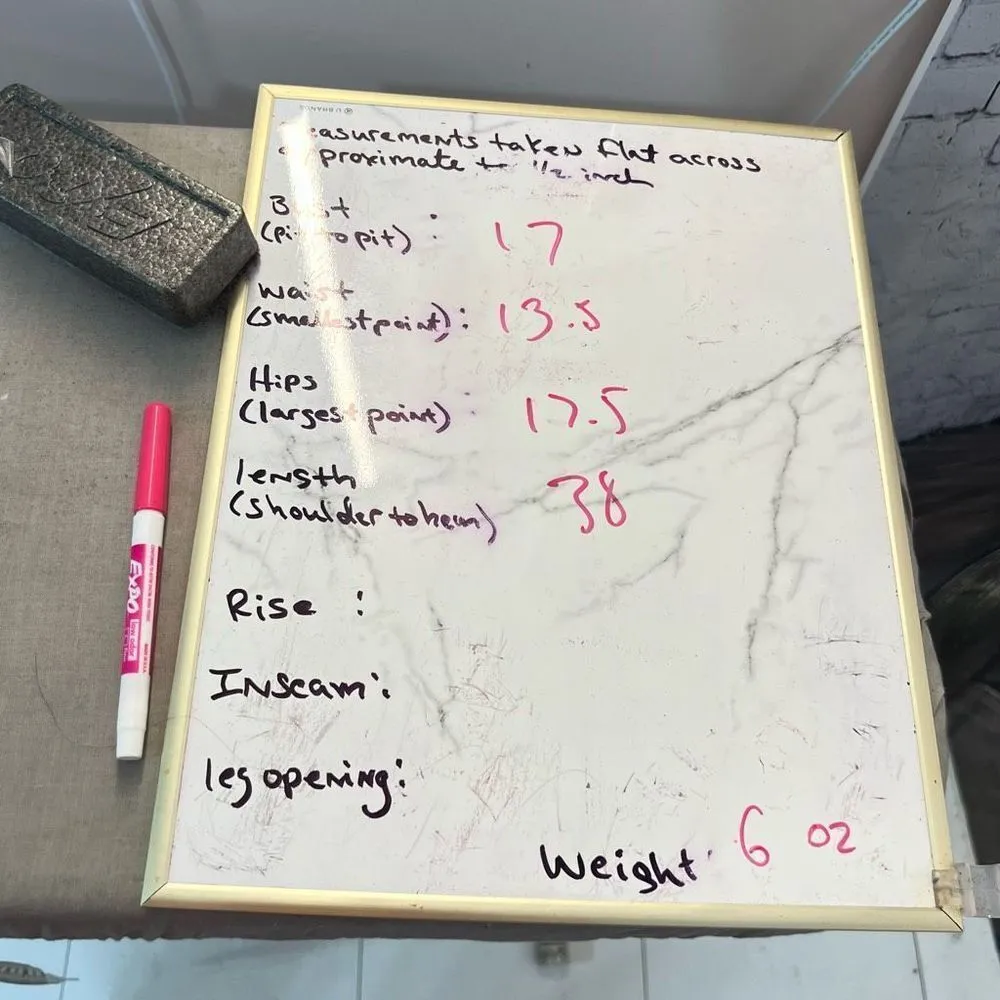 easurements taken flat across
proximate to 1/2 inch
(pi to pit) : 17
waist
(smallest point) : 13.5
Hips
(largest point) : 17.5
length
(shoulder to hem) 38
Rise :
Inseam :
leg opening :
Weight : 6 oz
EXPO
U BRANDS